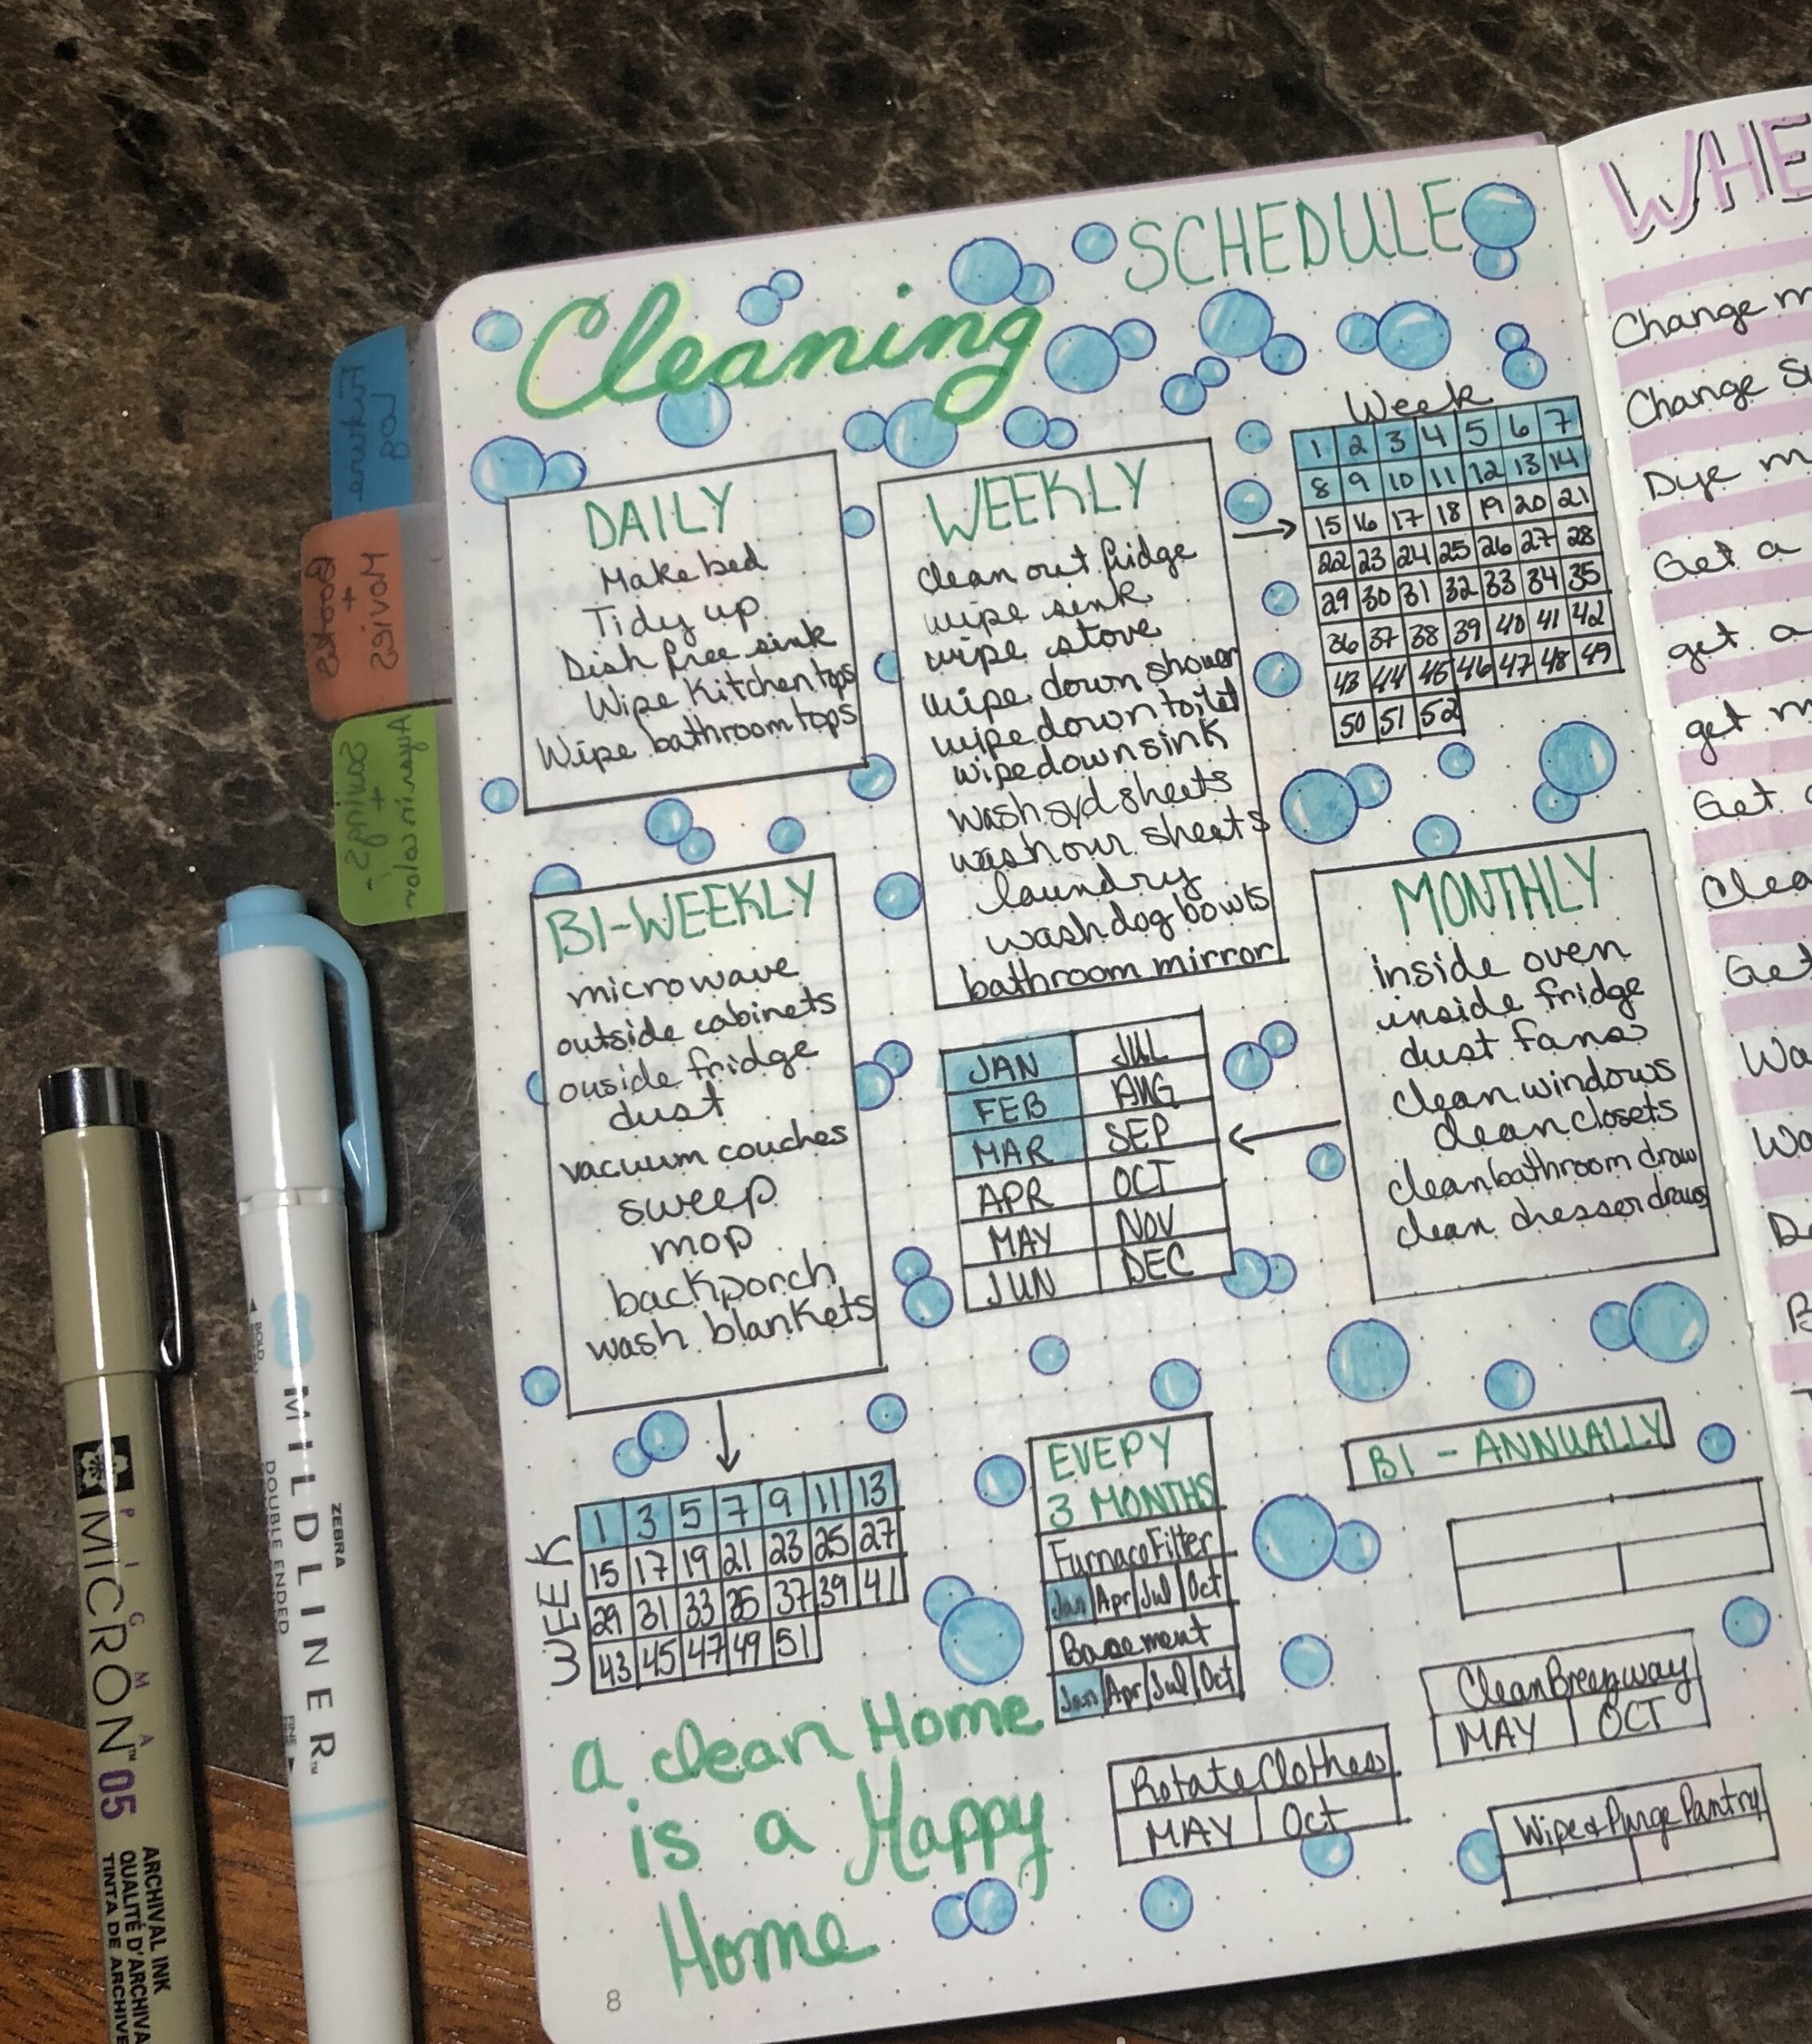 Cleaning
SCHEDULE
DAILY
Make bed
Tidy up
Dish free sink
Wipe Kitchen tops
Wipe bathroom tops
WEEKLY
clean out fridge
wipe sink
wipe stove
wipe down shower
wipe down toilet
wipe down sink
wash syd sheets
wash our sheets
laundry
wash dog bowls
bathroom mirror
Week
1 2 3 4 5 6 7
8 9 10 11 12 13 14
15 16 17 18 19 20 21
22 23 24 25 26 27 28
29 30 31 32 33 34 35
36 37 38 39 40 41 42
43 44 45 46 47 48 49
50 51 52
BI-WEEKLY
microwave
outside cabinets
ouside fridge
dust
vacuum couches
sweep
mop
backporch
wash blankets
WEEK
1 3 5 7 9 11 13
15 17 19 21 23 25 27
29 31 33 35 37 39 41
43 45 47 49 51
MONTHLY
inside oven
inside fridge
dust fans
clean windows
clean closets
clean bathroom draw
clean dresser draws
JAN JUL
FEB AUG
MAR SEP
APR OCT
MAY NOV
JUN DEC
EVERY
3 MONTHS
Furnace Filter
Jan Apr Jul Oct
Basement
Jan Apr Jul Oct
BI - ANNUALLY
Clean Breezway
MAY OCT
Rotate Clothes
MAY Oct
Wipe + Purge Pantry
a clean Home
is a Happy
Home
8
WHE
Change m
Change
Dye m
Get a
get a
get m
Get
Clea
Get
Wa
Wa
Future
log
Movies
+
Books
+
Savings
PIGMA
MICRON™ 05
ARCHIVAL INK
QUALITÉ D'ARCHIVA
TINTA DE ARCHIVE
ZEBRA
MILDLINER™
DOUBLE ENDED
BOLD
FINE